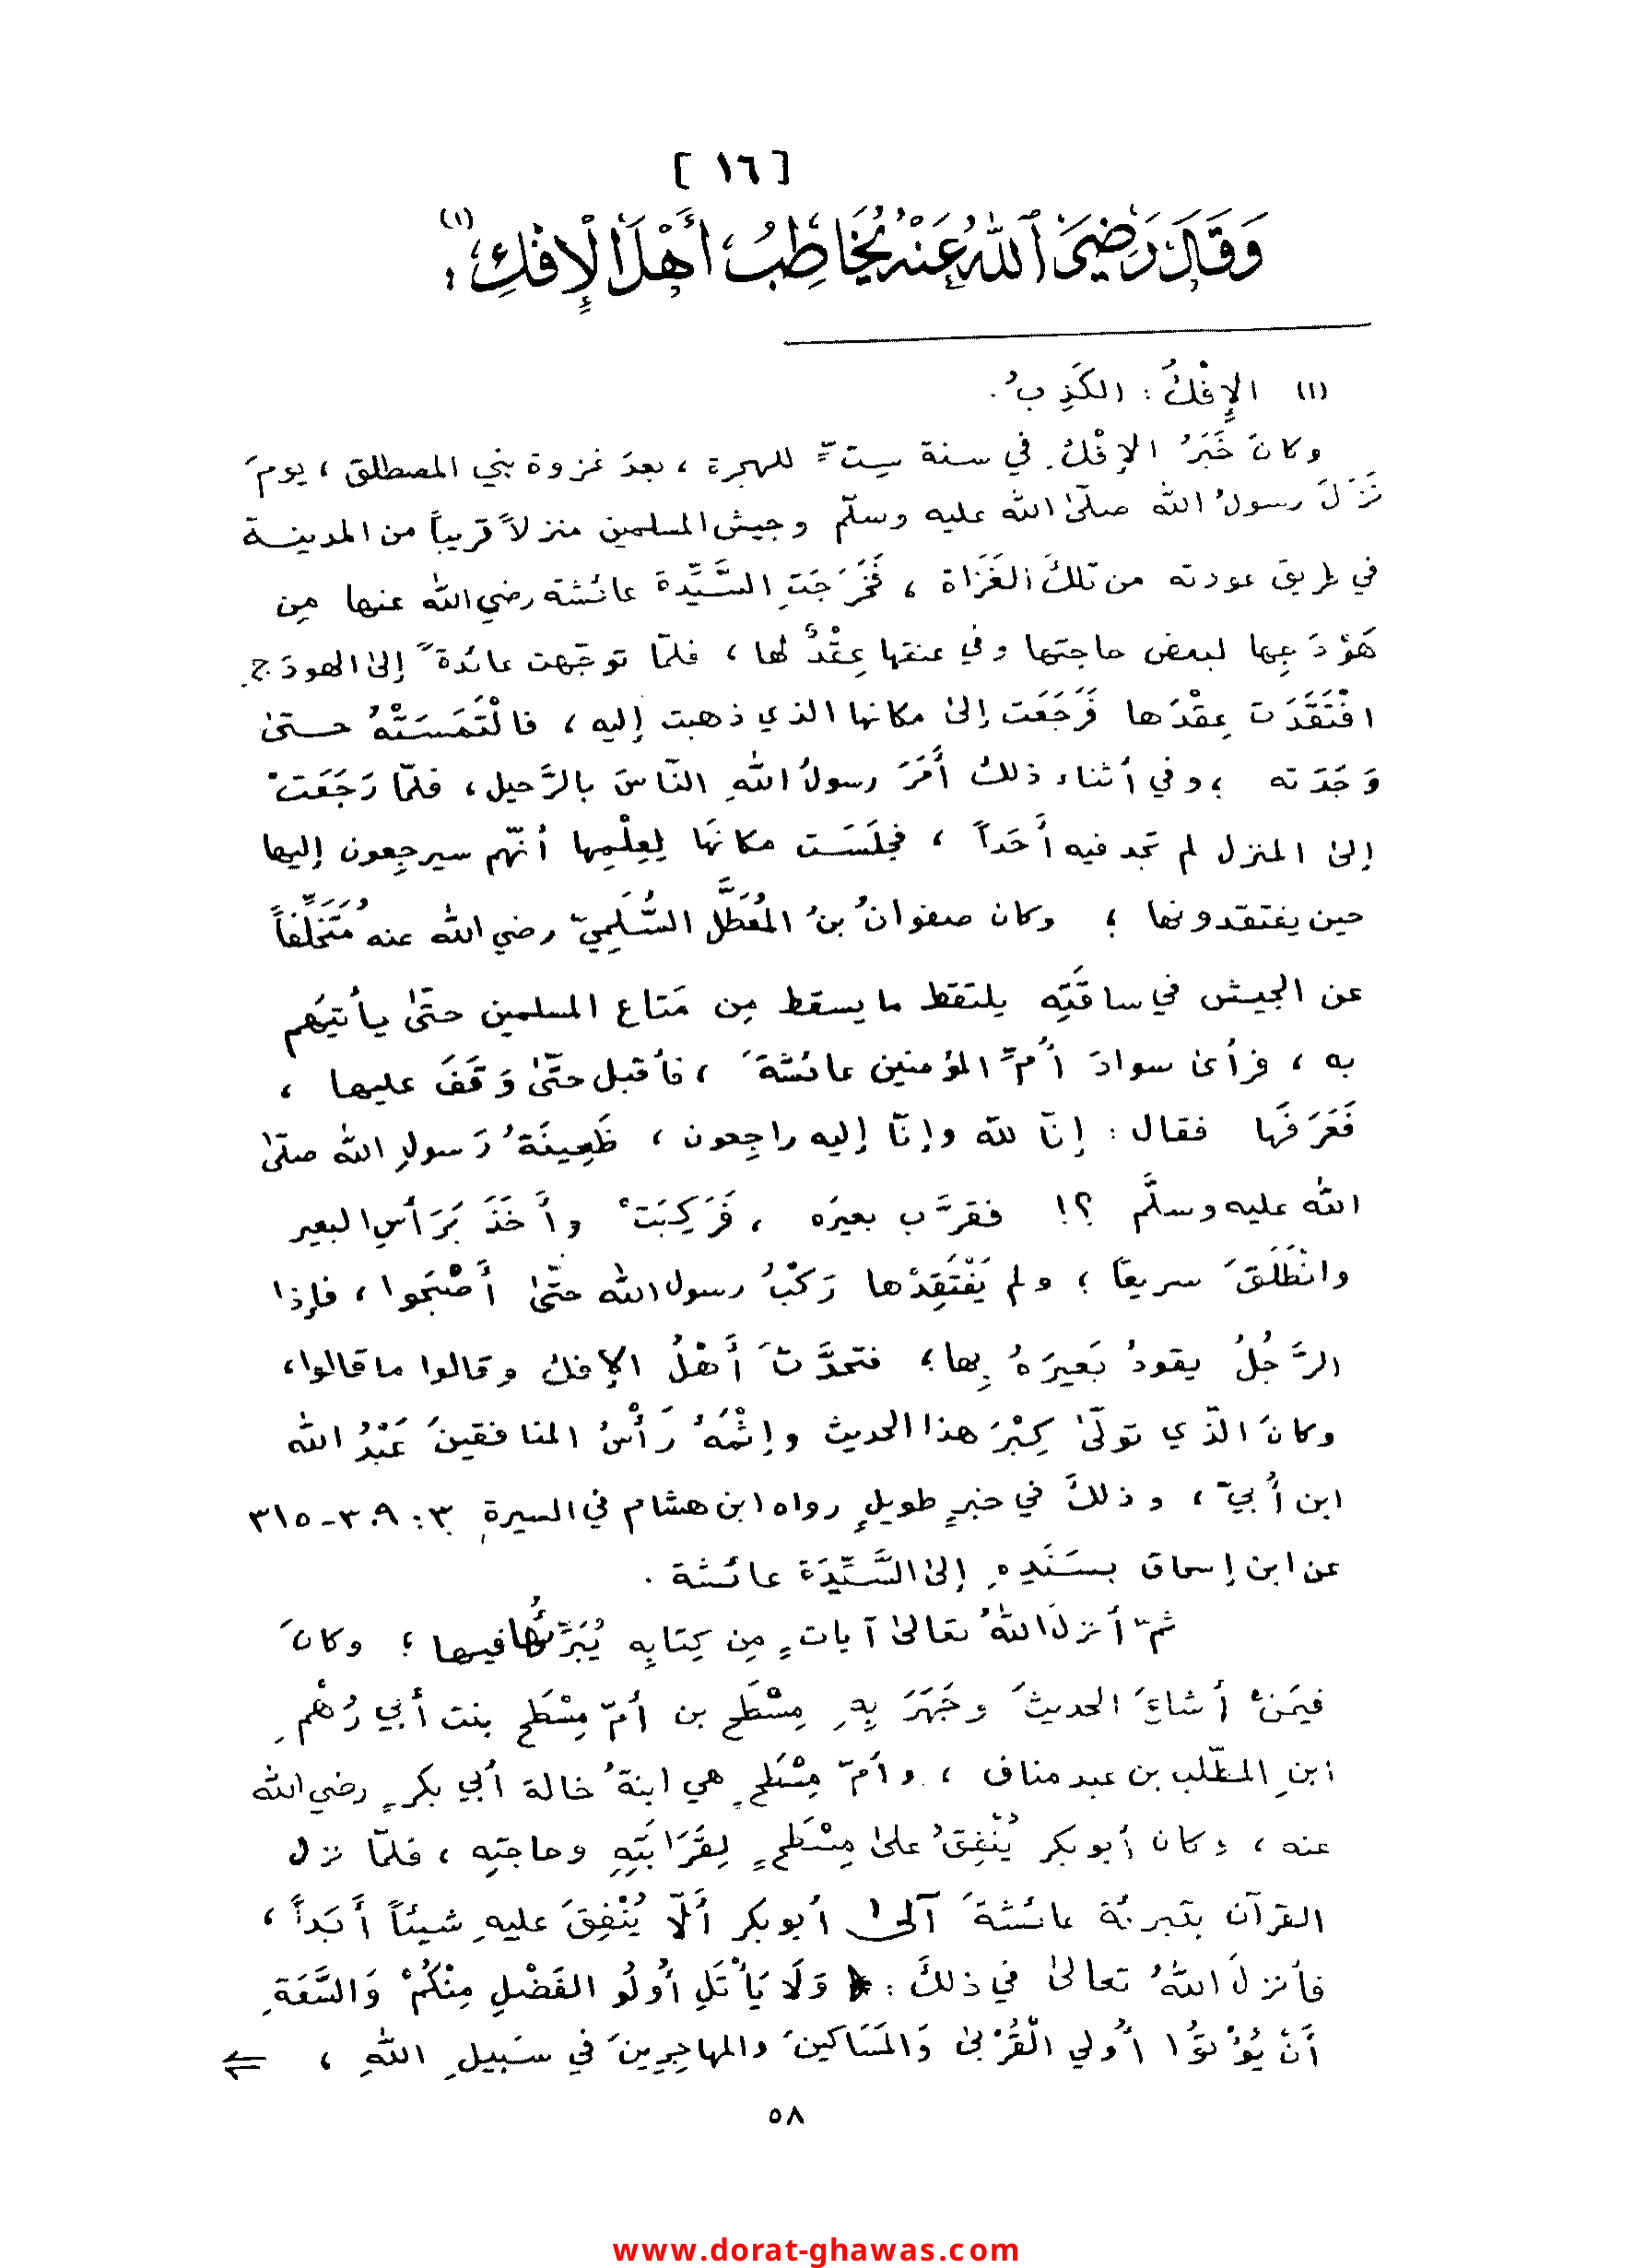 [ ١٦ ]
وَقَالَ رَضِيَ ٱللهُ عَنْهُ يُخَاطِبُ أَهْلَ الْإِفْكِ (١) :
(١) الإِفْكُ : الكَذِبُ .
وكانَ خَبَرُ الإِفْكِ في سنة سِتٍّ للهجرة ، بعدَ غزوة بني المصطلق ، يومَ
نَزَلَ رسولُ الله صلّىٰ الله عليه وسلّم وجيش المسلمين منزلاً قريباً من المدينـة
في طريق عودته من تلكَ الغَزَاة ، فَخَرَجَتِ السَّيِّدةَ عائشة رضي الله عنها مِن
هَوْدَجِها لبعض حاجتها وفي عنقها عِقْدٌ لها ، فلمّا توجّهت عائدةً إلىٰ الهودَجِ
افْتَقَدَت عِقْدَها فَرَجَعَت إلىٰ مكانها الذي ذهبت إليه ، فالْتَمَسَتْهُ حـتىٰ
وَجَدَته ؛ وفي أثناء ذلكَ أَمَرَ رسولُ اللهِ النّاسَ بالرَّحيل ، فلمّا رَجَعَتْ
إلىٰ المنزل لم تجد فيه أَحَداً ، فجلَسَـت مكانَها لِعِلْمِها أنّهم سيرجِعون إليها
حين يفتقدونها ؛ وكان صفوانُ بنُ المُعَطَّل السُّلَمِيّ رضي الله عنه مُتَخَلِّفاً
عن الجيـش في ساقَتِه يلتقط ما يسقط مِن مَتاع المسلمين حتّىٰ يأتيَهم
به ، فرأىٰ سوادَ أُمِّ المؤمنين عائشَةَ ، فأقبل حتّىٰ وَقَفَ عليها ،
فَعَرَفَها فقال : إنّا لله وإنّا إليه راجِعون ، ظَعِينَةُ رَسولِ الله صلّىٰ
الله عليه وسلَّم ؟! فقرَّب بعيرَه ، فَرَكِبَتْ وأَخَذَ بَرَأسِ البعير
وانْطَلَقَ سريعاً ؛ ولم يَفْتَقِدْها رَكْبُ رسول الله حتّىٰ أَصْبَحوا ، فإذا
الرَّجُلُ يقودُ بَعيرَهُ بِها ؛ فتحدَّثَ أَهْلُ الإفك وقالوا ما قالوا ،
وكانَ الّذي تولّىٰ كِبْرَ هذا الحديث وإثْمَهُ رَأْسُ المنافقينَ عَبْدُ الله
ابن أُبيّ ، وذلكَ في خبرٍ طويلٍ رواه ابن هشام في السيرةِ ٣ : ٣٠٩ - ٣١٥
عن ابن إسحاق بسَنَدِهِ إلىٰ السَّيِّدَة عائشة .
ثمّ أنزلَ اللهُ تعالىٰ آياتٍ مِن كِتابِه يُبَرِّئُها فيها ؛ وكانَ
فيمَنْ أشاعَ الحديثَ وجَهَرَ بِهِ مِسْطَح بن أمّ مِسْطَح بنت أبي رُهْمِ
ابنِ المطّلب بن عبد مناف ، وأمّ مِسْطَحٍ هي ابنةُ خالة أبي بكرٍ رضي الله
عنه ، وكان أبو بكر يُنْفِقُ علىٰ مِسْطَحٍ لِقَرَابَتِهِ وحاجتِه ، فلمّا نزل
القرآن بتبرئة عائشةَ آلىٰ أبو بكر أَلّا يُنْفِقَ عليهِ شيئاً أَبَداً ،
فأنزلَ اللهُ تعالىٰ في ذلكَ : ﴿ وَلَا يَأْتَلِ أُولُو الفَضْلِ مِنْكُمْ وَالسَّعَةِ
أَنْ يُؤْتُوا أُولي الْقُرْبىٰ وَالمَسَاكينَ والمهاجِرِينَ في سَبيلِ اللهِ ، ⇐
٥٨
www.dorat-ghawas.com